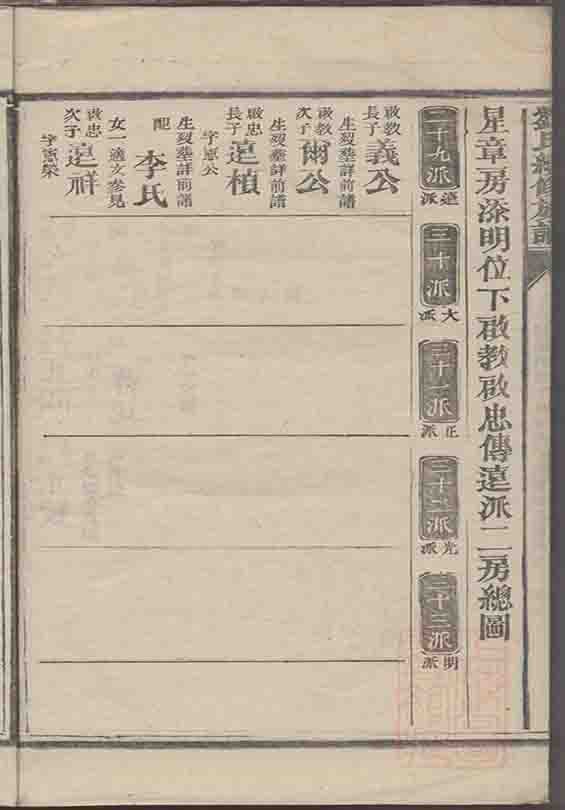 劉氏續修族譜
星章房添明位下啟教啟忠傳遠派二房總圖
二十九派
遠派
三十派
大派
三十一派
正派
三十二派
光派
三十三派
明派
啟教長子
義公
生歿塟詳前譜
啟教次子
爾公
生歿塟詳前譜
啟忠長子
遠楨
字憲公
生歿塟詳前譜
配
李氏
女一適文參見
啟忠次子
遠祥
字憲榮